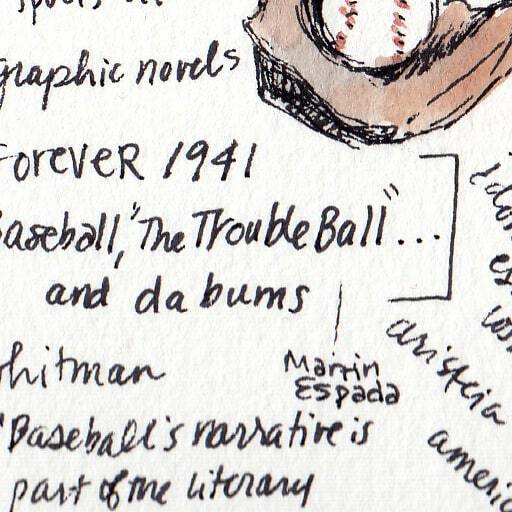 graphic novels
Forever 1941
Baseball, "The Trouble Ball"...
and da bums
Martín
Espada
Whitman
"Baseball's narrative is
part of the literary
aristeia